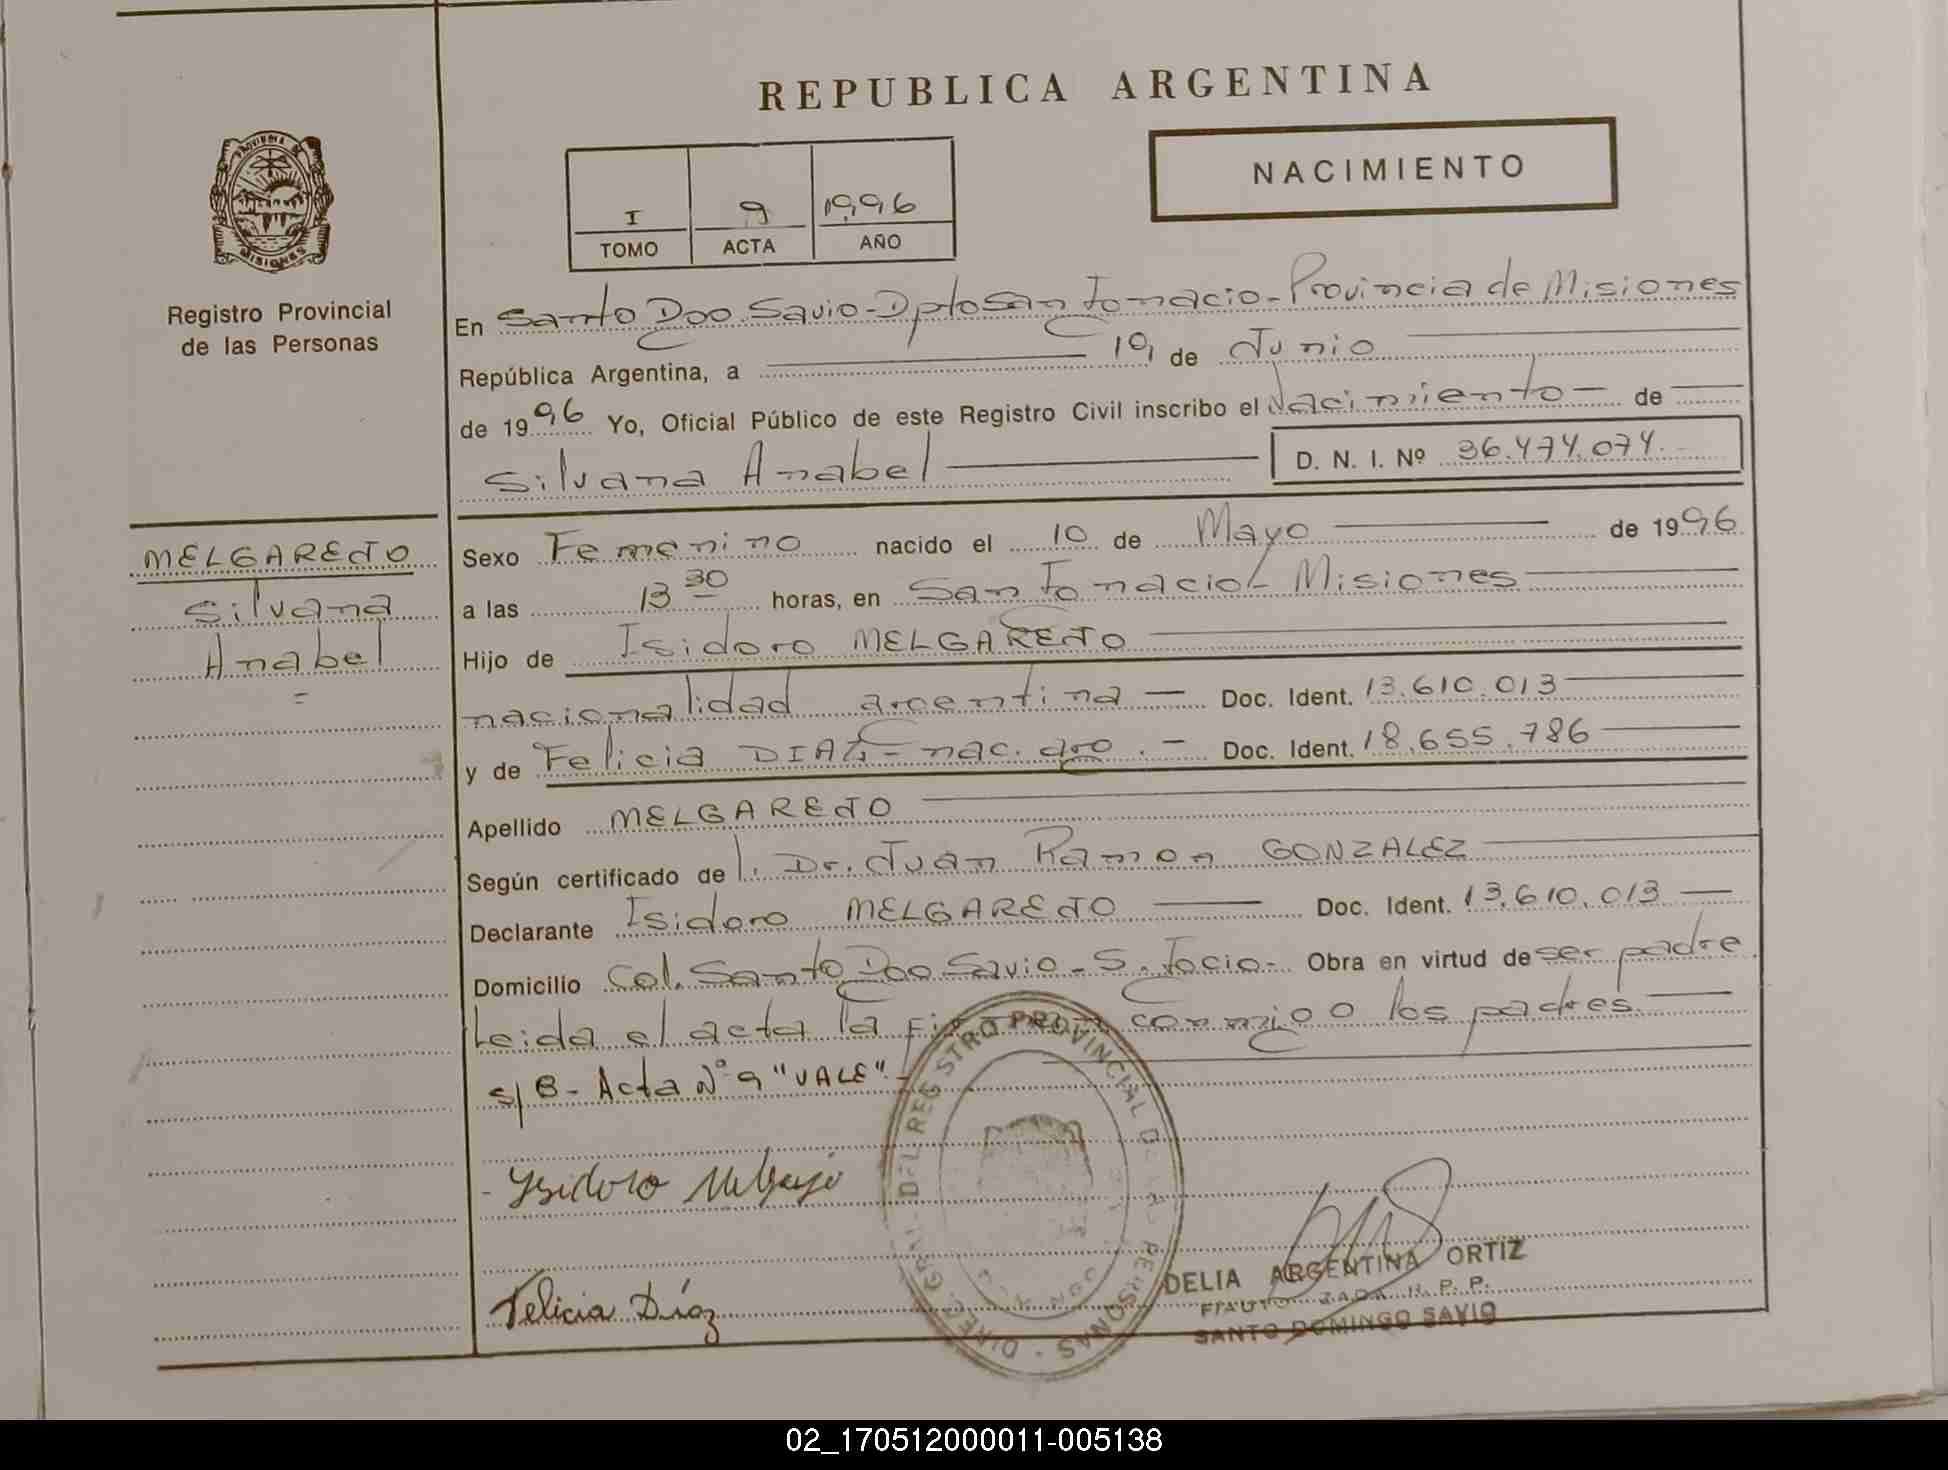 REPUBLICA ARGENTINA
NACIMIENTO
I 9 1996
TOMO ACTA AÑO
PROVINCIA DE
MISIONES
Registro Provincial
de las Personas
En Santo Dgo. Savio-Dpto San Ignacio-Provincia de Misiones
República Argentina, a 19 de Junio
de 1996 Yo, Oficial Público de este Registro Civil inscribo el Nacimiento - de
Silvana Anabel D. N. I. Nº 36.474.074.-
MELGAREJO
Silvana
Anabel
=
Sexo Femenino nacido el 10 de Mayo de 1996
a las 13 30 horas, en San Ignacio- Misiones
Hijo de Isidoro MELGAREJO
nacionalidad argentina - Doc. Ident. 13.610.013
y de Felicia DIAZ- nac. arg. - Doc. Ident. 18.655.786
Apellido MELGAREJO
Según certificado de l. Dr. Juan Ramon GONZALEZ
Declarante Isidoro MELGAREJO Doc. Ident. 13.610.013
Domicilio Col. Santo Dgo. Savio- S. Igcio- Obra en virtud de ser padre
Leida el acta la conmigo los padres.
s/B- Acta Nº 9 "VALE".-
- Ysidoro Melgarejo
Felicia Díaz
DIREC. GRAL. DEL REGISTRO PROVINCIAL DE LAS PERSONAS
DELIA ARGENTINA ORTIZ
R. P. P.
SANTO DOMINGO SAVIO
02_170512000011-005138